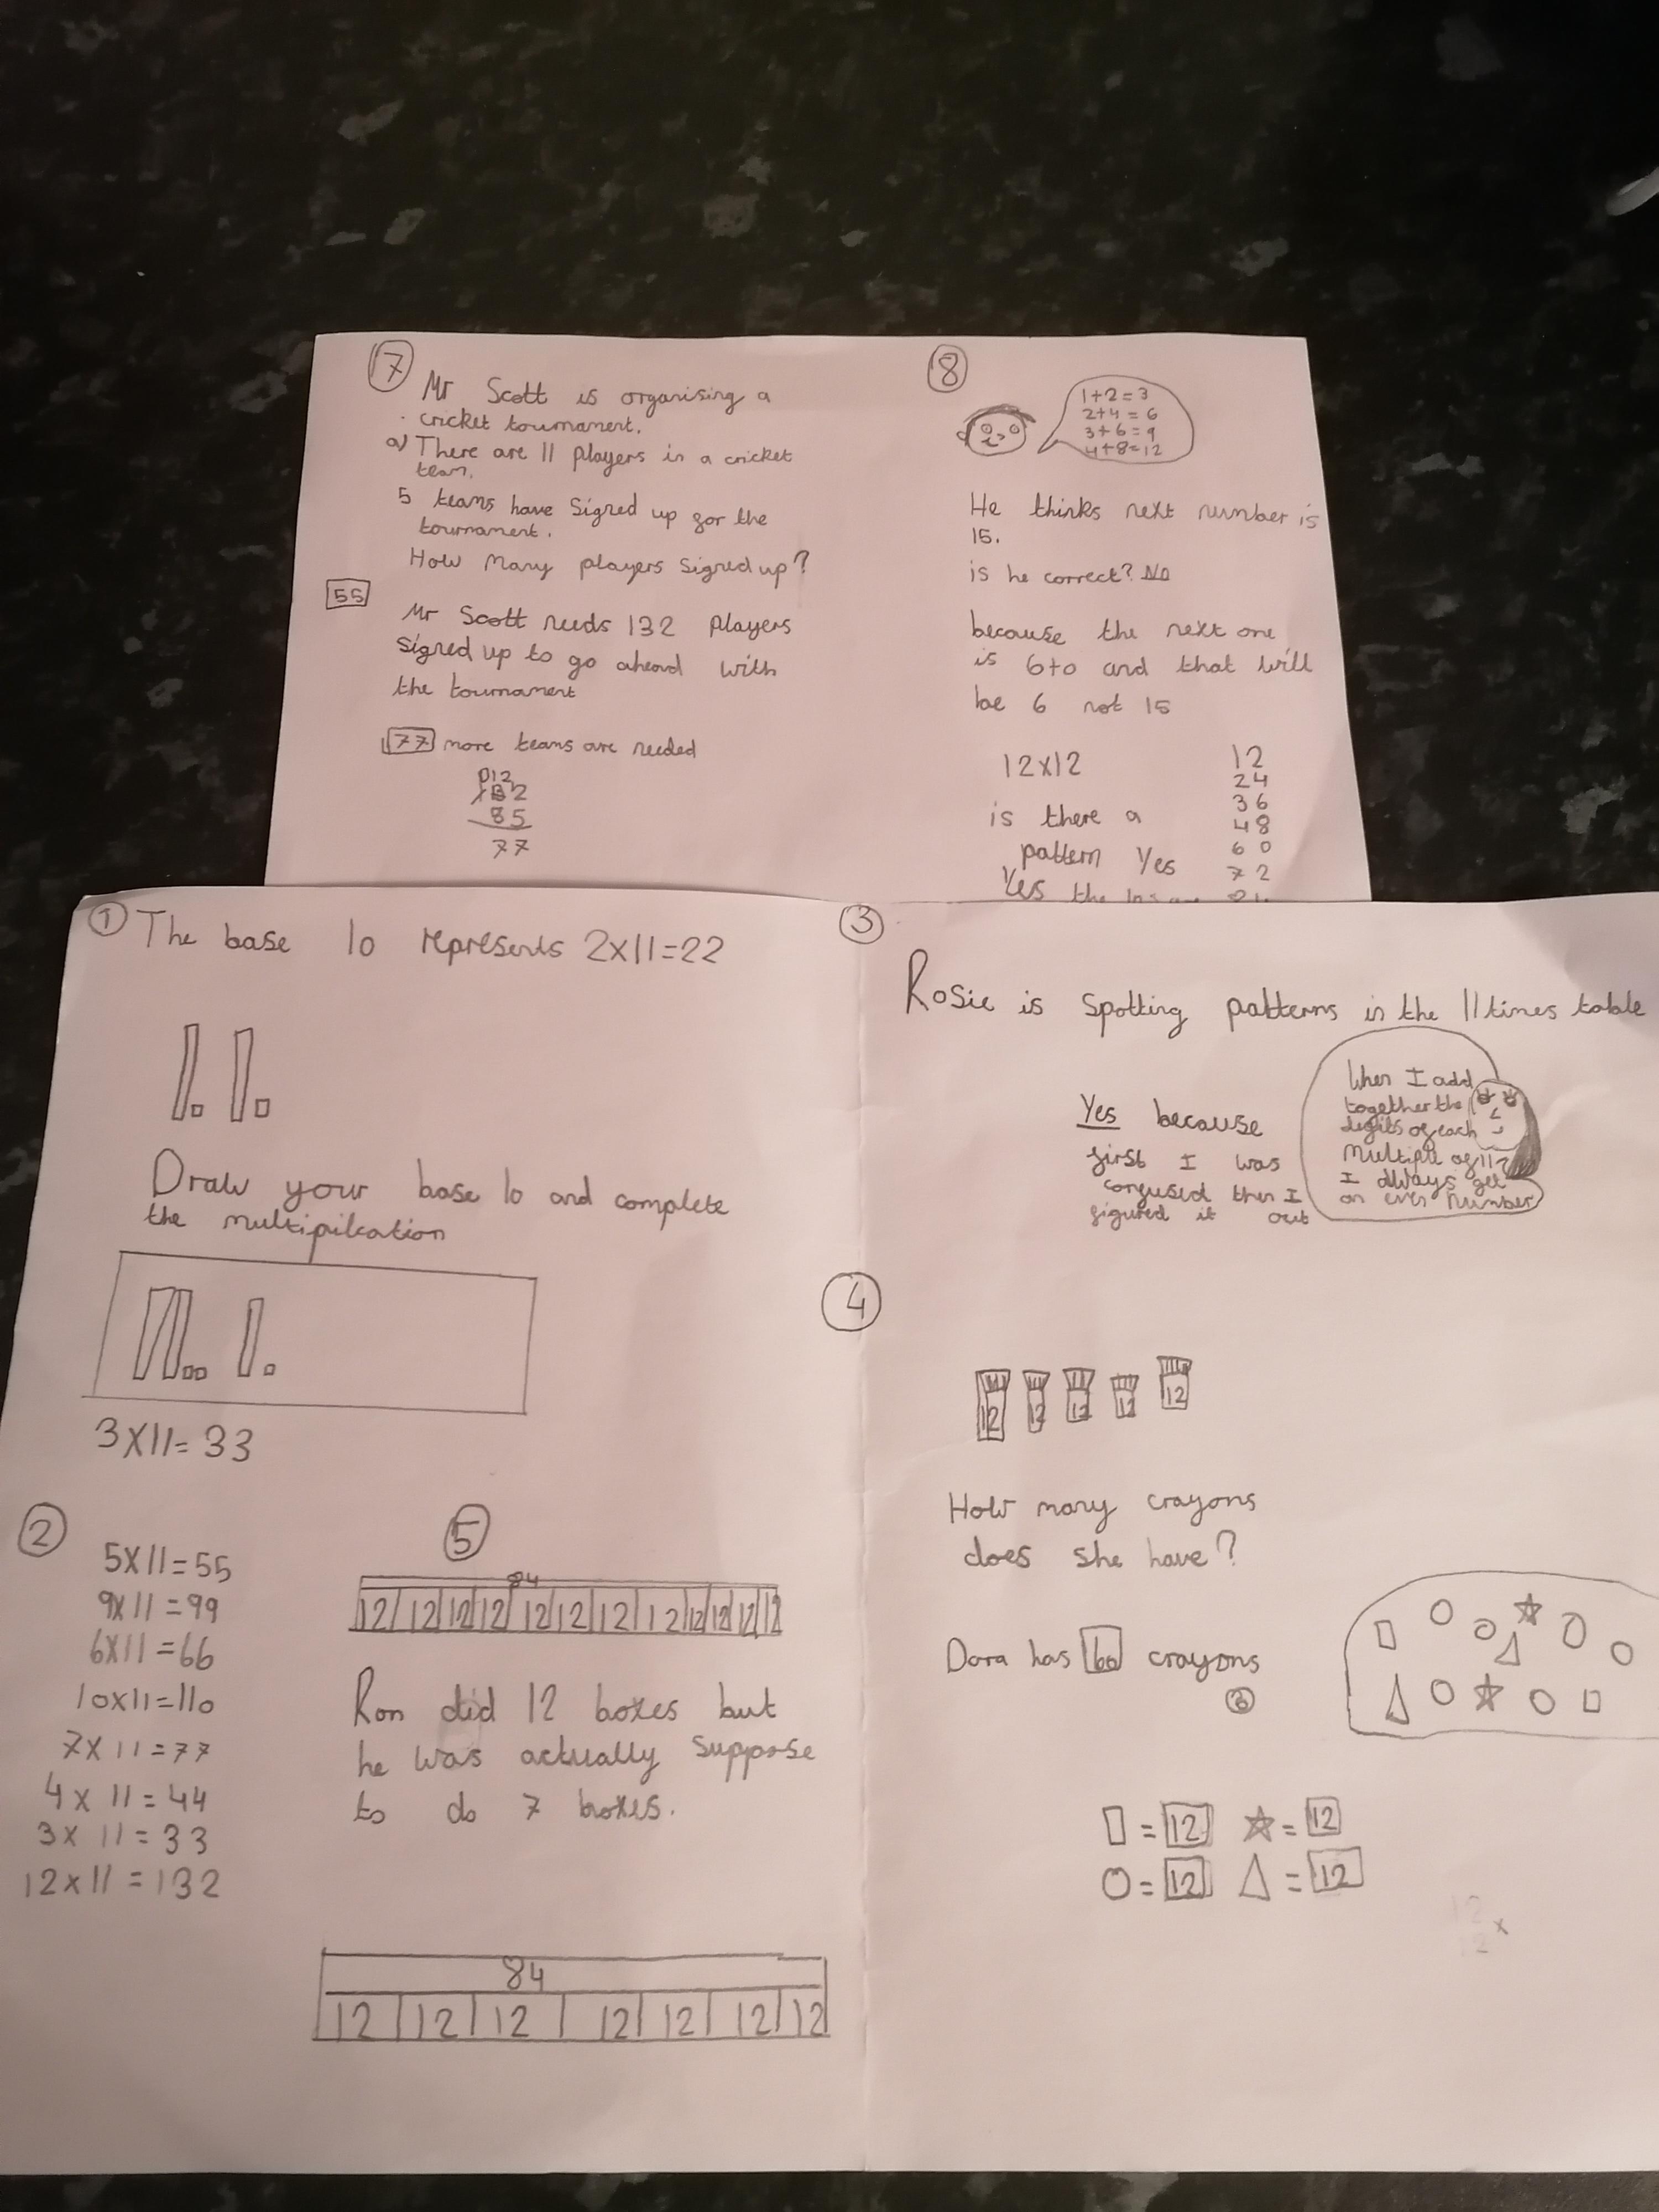 7
Mr Scott is organising a
cricket tournament.
a) There are 11 players in a cricket
team.
5 teams have signed up for the
tournament.
How many players signed up?
55
Mr Scott needs 132 players
signed up to go ahead with
the tournament
77 more teams are needed
012
132
85
77
8
1+2=3
2+4=6
3+6=9
4+8=12
He thinks next number is
15.
is he correct? No
because the next one
is 6+0 and that will
be 6 not 15
12x12
is there a
pattern Yes
Yes the
12
24
36
48
60
72
1 The base 10 represents 2x11=22
Draw your base 10 and complete
the multipilcation
3x11=33
2
5x11=55
9x11=99
6x11=66
10x11=110
7x11=77
4x11=44
3x11=33
12x11=132
5
84
12 12 12 12 12 12 12 12 12 12 12 12
Ron did 12 boxes but
he was actually suppose
to do 7 boxes.
84
12 12 12 12 12 12 12
3
Rosie is spotting patterns in the 11 times table
When I add
together the
digits of each
multiple of 11
I always get
an even number
Yes because
first I was
confused then I
figured it out
4
12 12 12 12 12
How many crayons
does she have?
Dora has 60 crayons
= 12 = 12
= 12 = 12
12 x
12